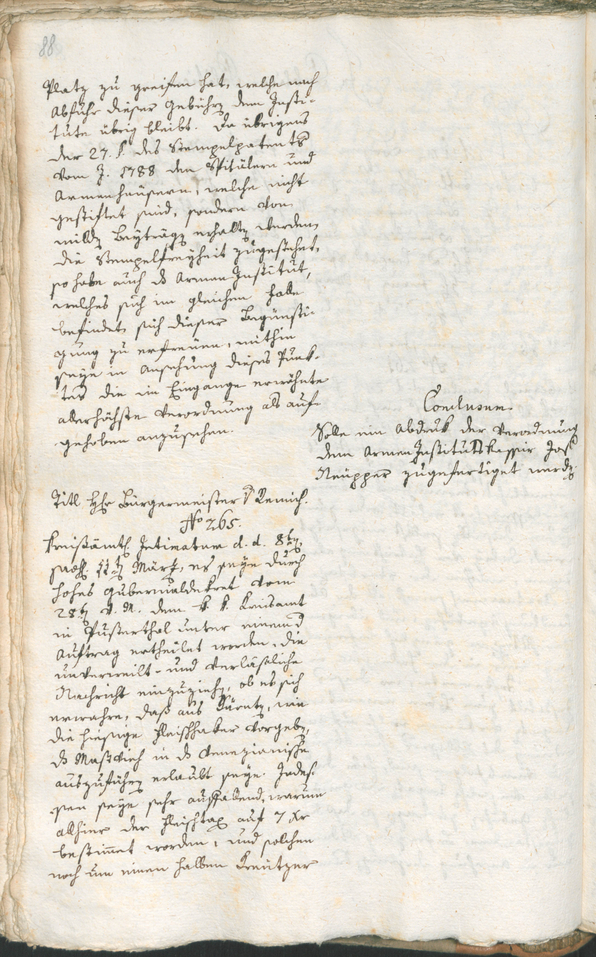 88
Platz zu greifen hat, welche nach
Abfuhr dieser Gebühr dem Insti-
tute übrig bleibt. Da übrigens
der 27. § des Stempelpatents
vom J. 1788 den Spitälern und
Armenhäusern, welche nicht
gestiftet sind, sondern von
milden Beyträgen erhalten werden,
die Stempelfreyheit zugestehet,
so habe auch das Armen Institut,
welches sich im gleichen Falle
befindet, sich dieser Begünsti-
gung zu erfreuen, mithin
seye in Ansehung dieses Punk-
tes die im Eingange erwähnte
allerhöchste Verordnung als auf-
gehoben anzusehen.
Conclusum.
Solle ein Abdruk der Verordnung
dem Armen Instituts Kassier Jos.
Neupper zugefertiget werden.
Titl. Hr. Bürgermeister v. Remich.
No 265.
Kreisämtl. Intimatum d. d. 8ten,
praes. 11ten März, es seye durch
hohes Gubernialdekret vom
28ten v. M. dem k. k. Kreisamt
in Pusterthal unter einem
Auftrag ertheilet worden, die
unverweilt- und verläßliche
Nachricht einzuziehen, ob es sich
erwahre, daß aus Kärnten, wie
die hiesige Fleischhaker vorgeben,
das Mastvieh in das Venezianische
auszuführen erlaubt seye. Indes-
sen seye sehr auffallend, warum
allhier der Fleischtax auf 7 Xr
bestimmt worden, und solchen
noch um einen halben Kreutzer